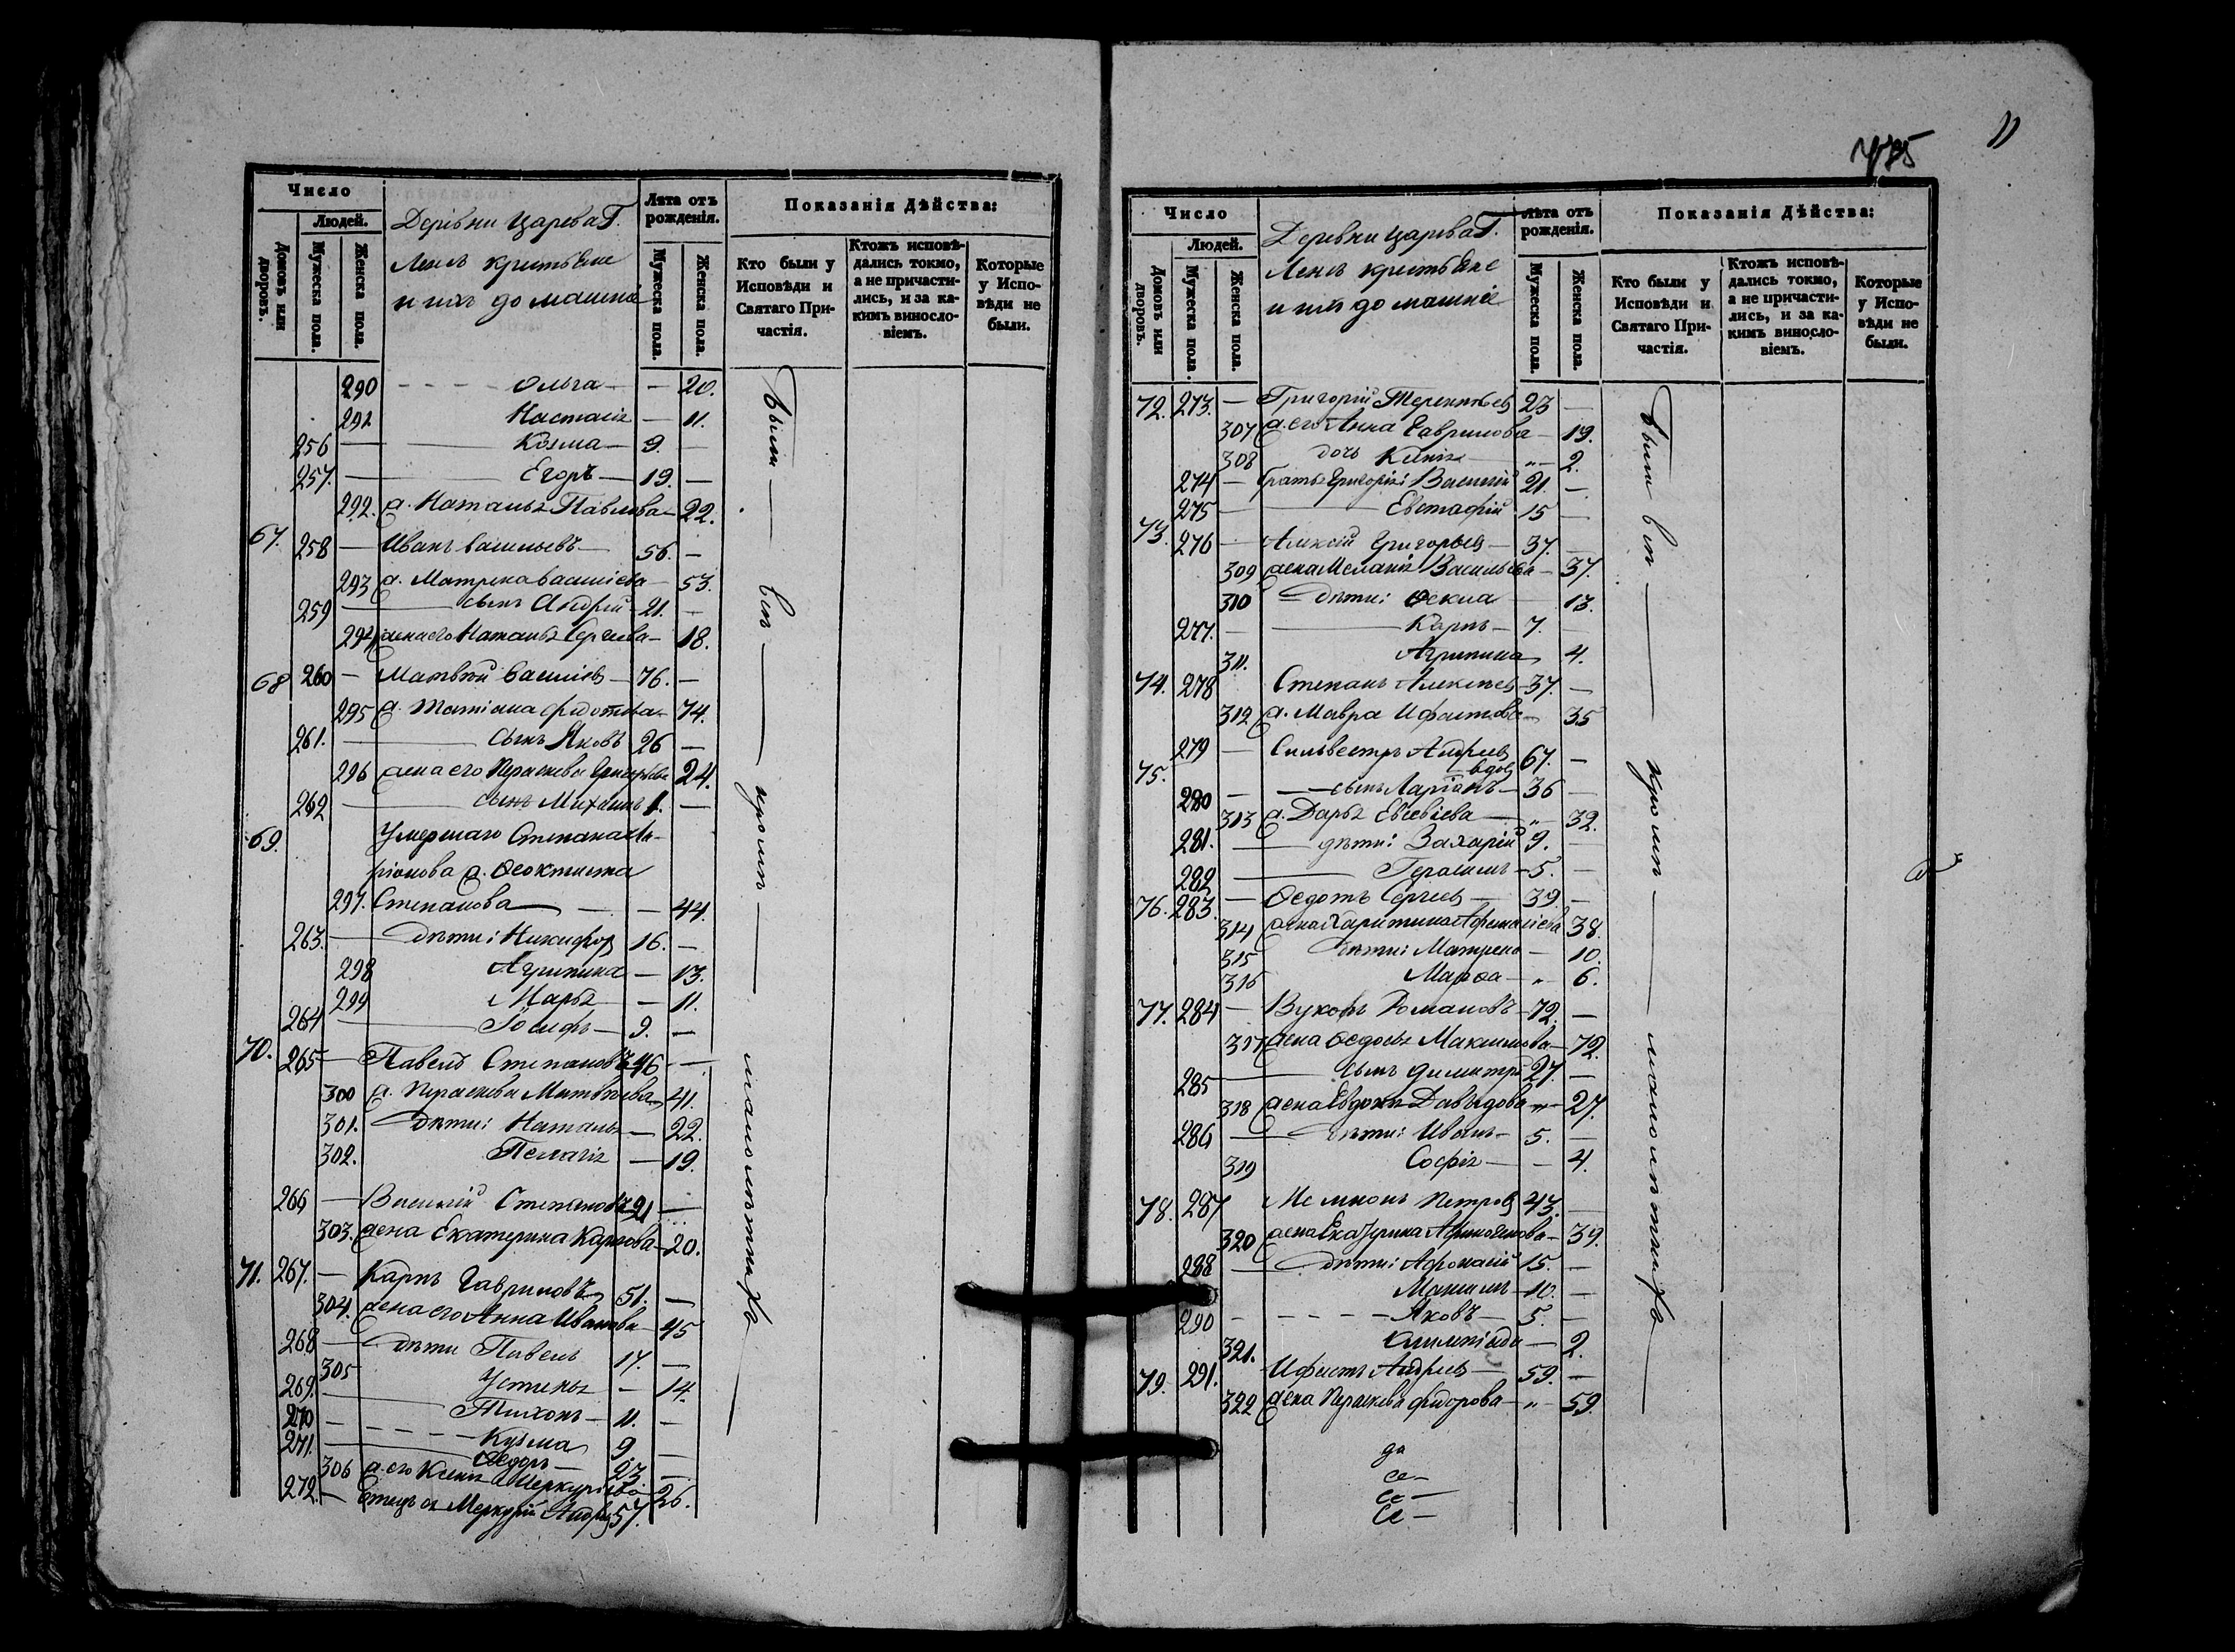 Число
Людей.
Домовъ или дворовъ.
Мужеска пола.
Женска пола.
Деревни Царева Г.
крестьяне
и ихъ домашніе
Лѣта отъ рожденія.
Мужеска пола.
Женска пола.
Показанія Дѣйства:
Кто были у Исповѣди и Святаго Причастія.
Ктожъ исповѣдались токмо, а не причастились, и за какимъ винословіемъ.
Которые у Исповѣди не были.
290 Ольга — 20.
292 Настасія — 11.
256 — Козма — 9. —
257. — Егоръ — 19. —
292. ж. Наталья Павлова — 22.
67. 258 — Иванъ Васильевъ — 56. —
293 ж. Матрена Василіева — 53.
259 — сынъ Андрей — 21. —
294 жена его Наталья Сергеева — 18.
68 260 — Матвѣй Василіевъ — 76. —
295 ж. Татіана Федотова — 74.
261. — сынъ Яковъ 26 —
296 жена его Параскева Григорьева 24.
262 — сынъ Михаилъ 1. —
69. Умершаго Степана Ла-
ріонова ж. Ѳеоктиста
297. Степанова — — 44.
263. — дѣти: Никифоръ 16. —
298 Агрипина — 13.
299 Марья — 11.
264 — Іосифъ — 9. —
70. 265 — Павелъ Степановъ 46 —
300 ж. Параскева Матвѣева 41.
301. дѣти: Наталья — 22.
302. Пелагія — 19.
266 — Василій Степановъ 21 —
303. жена Екатерина Карпова — 20.
71. 267. — Карпъ Гавриловъ 51. —
304. жена его Анна Иванова — 45
268 — дѣти Павелъ 17. —
305 Устинья — 14.
269. — Тихонъ — 11. —
270 — Кузма 9. —
271. — Ѳедоръ — 23 —
306 ж. его Ксенія Меркуріева — 26.
272. — Отецъ ея Меркурій Андреевъ 57.
Были — всѣ — кромѣ — малолѣтнихъ —
775
11
Число
Людей.
Домовъ или дворовъ.
Мужеска пола.
Женска пола.
Деревни Царева Г.
крестьяне
и ихъ домашніе
Лѣта отъ рожденія.
Мужеска пола.
Женска пола.
Показанія Дѣйства:
Кто были у Исповѣди и Святаго Причастія.
Ктожъ исповѣдались токмо, а не причастились, и за какимъ винословіемъ.
Которые у Исповѣди не были.
72. 273. — Григорій Терентьевъ 23 —
307 ж. его Анна Гаврилова — 19.
308 дочь Ксенія — 2.
274 — братья Григорія: Василій 21. —
275 — Евстафій 15 —
73. 276 — Алексій Григорьевъ — 37. —
309 жена Меланія Васильева — 37.
310 дѣти: Ѳекла 13.
277. — Карпъ — 7. —
311. Агрипина 4.
74. 278 Степанъ Алексѣевъ — 37. —
312 ж. Мавра 35
75. 279 — Сильвестръ Андреевъ вдов. 67. —
280 — сынъ Ларіонъ — 36 —
313 ж. Дарья Евсевіева — 32.
281. — дѣти: Захарій 9. —
282 — Герасимъ — 5. —
76. 283. — Ѳедотъ Сергеевъ — 39. —
314 жена Харитина Афанасіева 38.
315 дѣти: Матрена — 10.
316 Марѳа — 6.
77. 284 — Вуколъ Романовъ — 72. —
317 жена Ѳедосья Максимова — 72.
285 — сынъ Димитрій 27. —
318 жена Евдокія Давыдова — 27.
286 — дѣти: Иванъ — 5. —
319 Софія — — 4.
78. 287 Петровъ 43. —
320 жена Екатерина — 39.
288 — дѣти: Афонасій 15. —
Максимъ — 10. —
290 — Яковъ — 5. —
321. Олимпіада — 2.
79. 291. Андреевъ — 59. —
322 жена Параскева Федорова — 59.
Были всѣ — кромѣ — малолѣтнихъ —